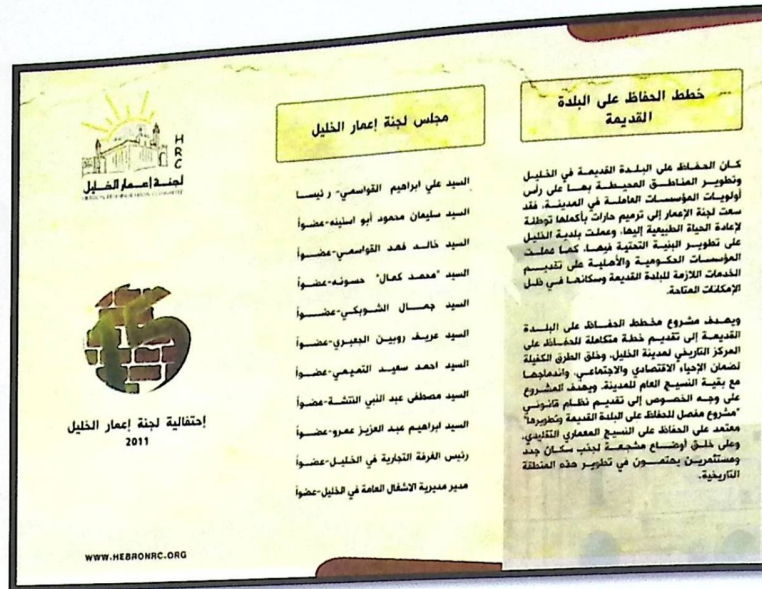 خطط الحفاظ على البلدة
القديمة
كان الحفاظ على البلدة القديمة في الخليل
وتطوير المناطق المحيطة بها على رأس
أولويات المؤسسات العاملة في المدينة، فقد
سعت لجنة الإعمار إلى ترميم حارات بأكملها توطئة
لإعادة الحياة الطبيعية إليها، وعملت بلدية الخليل
على تطوير البنية التحتية فيها، كما عملت
المؤسسات الحكومية والأهلية على تقديم
الخدمات اللازمة للبلدة القديمة وسكانها في ظل
الإمكانات المتاحة.
ويهدف مشروع مخطط الحفاظ على البلدة
القديمة إلى تقديم خطة متكاملة للحفاظ على
المركز التاريخي لمدينة الخليل، وخلق الطرق الكفيلة
لضمان الإحياء الاقتصادي والاجتماعي، واندماجها
مع بقية النسيج العام للمدينة، ويهدف المشروع
على وجه الخصوص إلى تقديم نظام قانوني
"مشروع مفصل للحفاظ على البلدة القديمة وتطويرها"
معتمد على الحفاظ على النسيج المعماري التقليدي،
وعلى خلق أوضاع مشجعة لجذب سكان جدد
ومستثمرين يهتمون في تطوير هذه المنطقة
التاريخية.
مجلس لجنة إعمار الخليل
السيد علي ابراهيم القواسمي- رئيسا
السيد سليمان محمود أبو اسنينه-عضواً
السيد خالد فهد القواسمي-عضواً
السيد "محمد كمال" حسونه-عضواً
السيد جمال الشوبكي-عضواً
السيد عريف روبين الجعبري-عضواً
السيد احمد سعيد التميمي-عضواً
السيد مصطفى عبد النبي النتشة-عضواً
السيد ابراهيم عبد العزيز عمرو-عضواً
رئيس الغرفة التجارية في الخليل-عضواً
مدير مديرية الاشغال العامة في الخليل-عضواً
HRC
لجنة إعمار الخليل
HEBRON REHABILITATION COMMITTEE
15
إحتفالية لجنة إعمار الخليل
2011
WWW.HEBRONRC.ORG